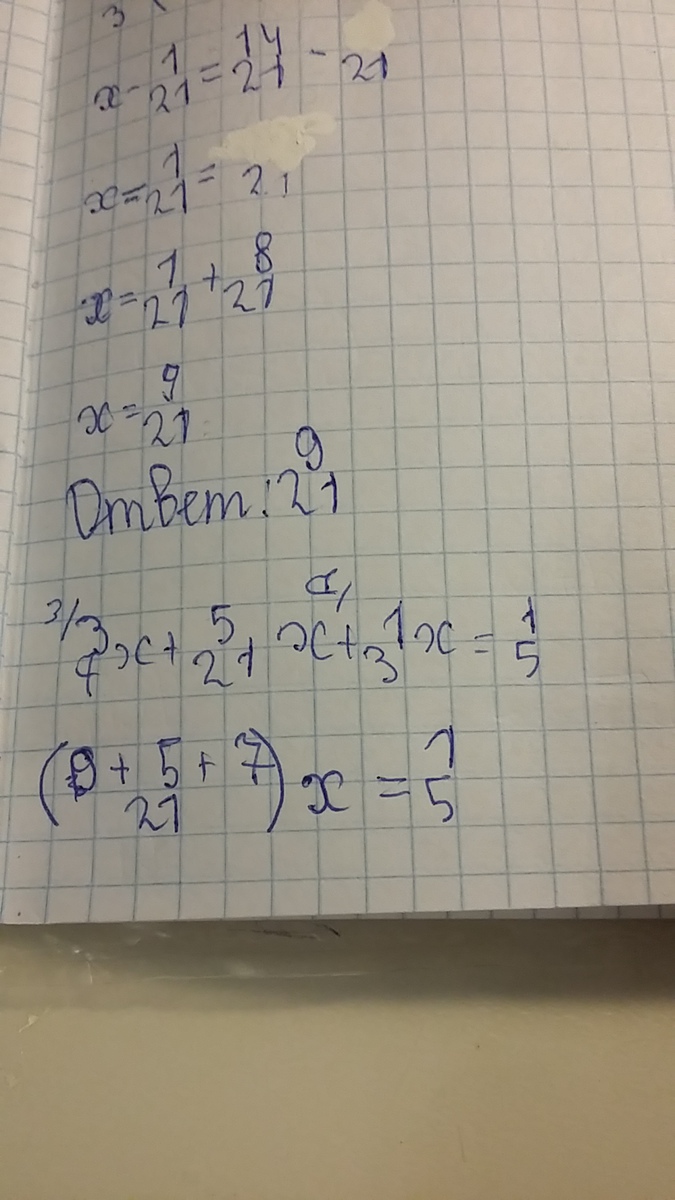 3
x - 1/21 = 14/21 - /21
x = 1/21 = 21
x = 1/21 + 8/21
x = 9/21
Ответ: 9/21
3/ 3/7 x + 5/21 x + 1/3 x = 1/5
(9 + 5 + 7 / 21) x = 1/5